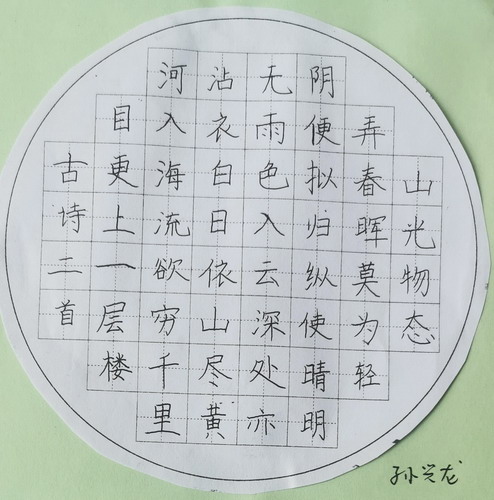 山光物态
弄春晖莫为轻
阴便拟归纵使晴明
无雨色入云深处亦
沾衣白日依山尽黄
河入海流欲穷千里
目更上一层楼
古诗二首
孙兴龙